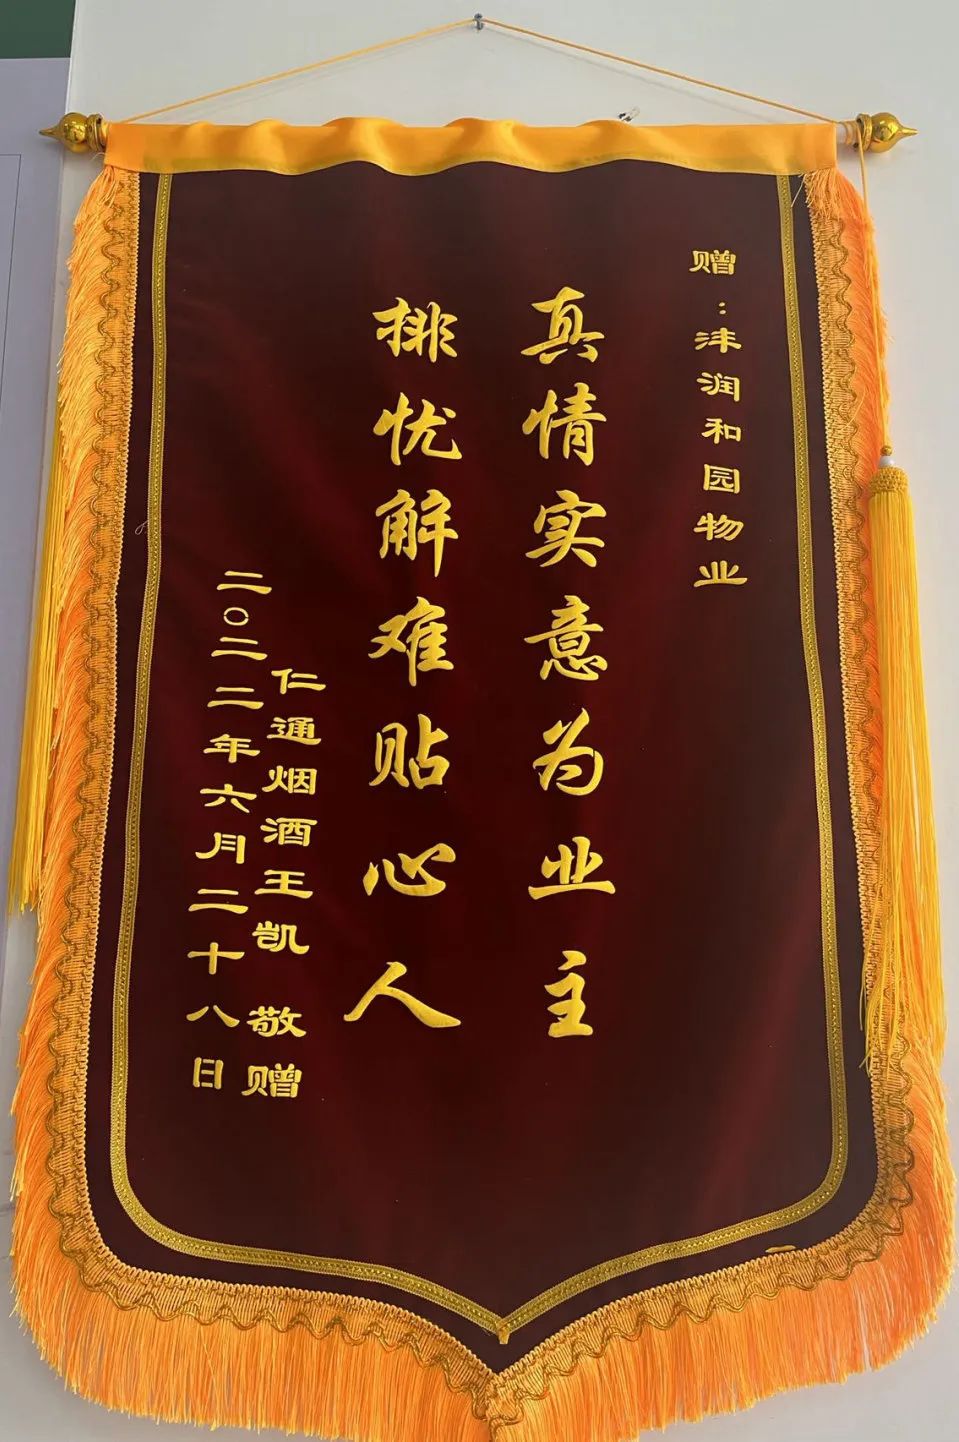 赠：沣润和园物业
真情实意为业主
排忧解难贴心人
仁通烟酒王凯 敬赠
二〇二二年六月二十八日